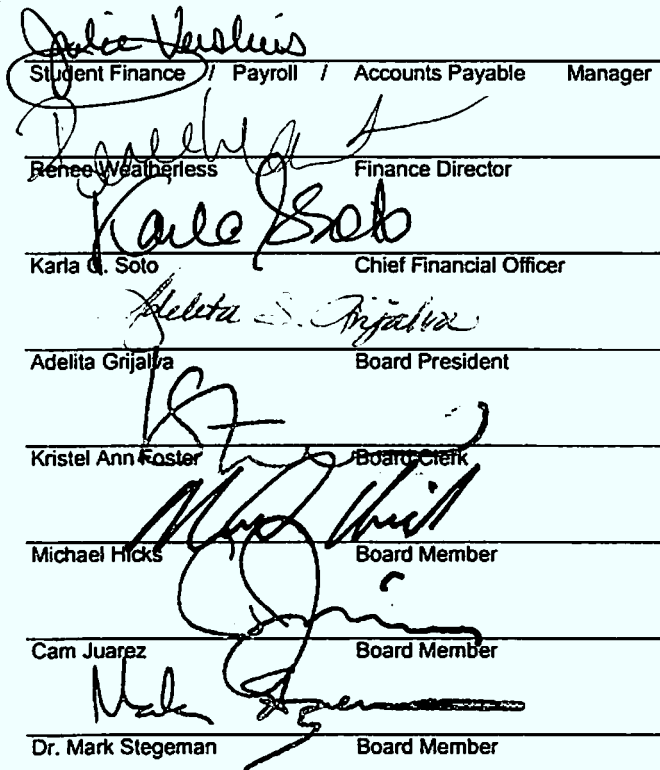 Julie
Student Finance / Payroll / Accounts Payable Manager
Renee Weatherless Finance Director
Karla G Soto
Karla G. Soto Chief Financial Officer
Adelita S. Grijalva
Adelita Grijalva Board President
Kristel Ann Foster Board Clerk
Michael Hicks Board Member
Cam Juarez Board Member
Mark
Dr. Mark Stegeman Board Member